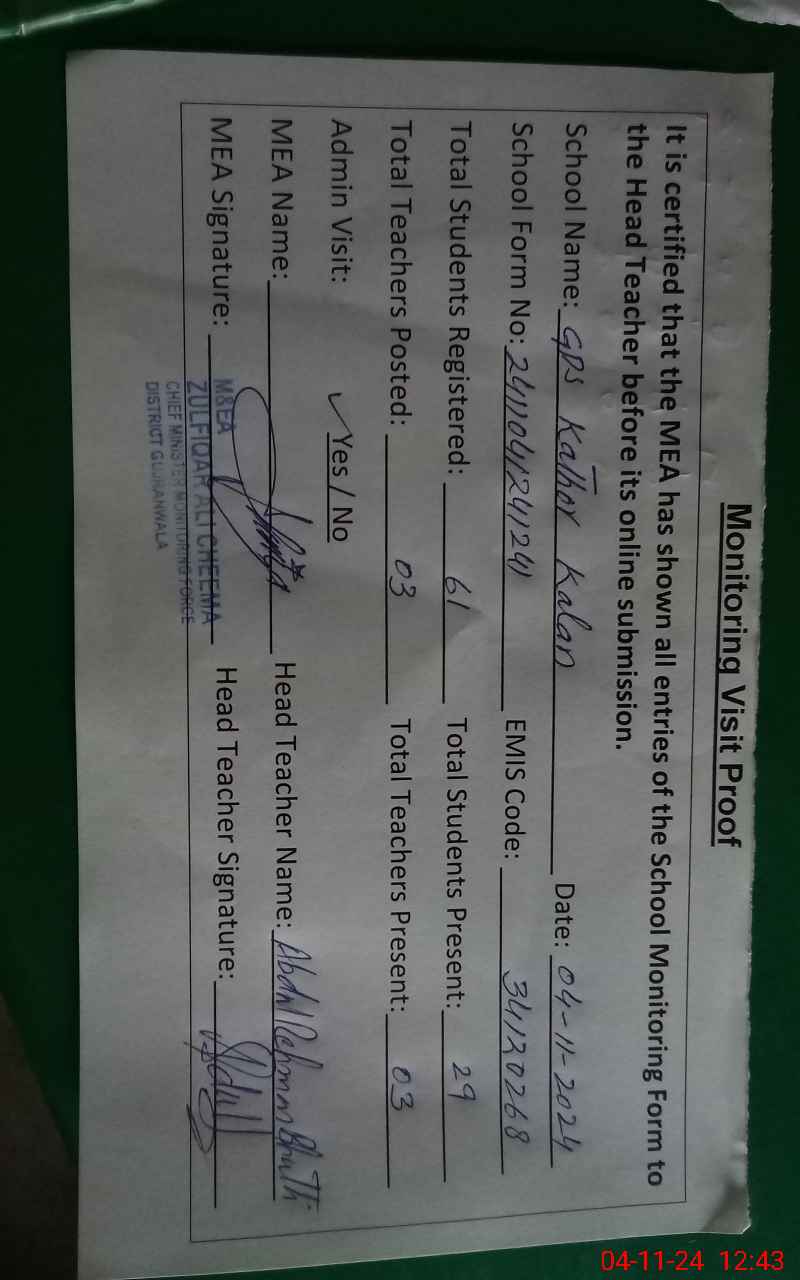 Monitoring Visit Proof
It is certified that the MEA has shown all entries of the School Monitoring Form to
the Head Teacher before its online submission.
School Name: GPS Kathor Kalan Date: 04-11-2024
School Form No: EMIS Code: 34120268
Total Students Registered: 61 Total Students Present: 29
Total Teachers Posted: 03 Total Teachers Present: 03
Admin Visit: ✓ Yes / No
MEA Name: Head Teacher Name: Abdul Rehman Bhatti
MEA Signature: Head Teacher Signature:
M&EA
ZULFIQAR ALI CHEEMA
CHIEF MINISTER MONITORING FORCE
DISTRICT GUJRANWALA
04-11-24 12:43